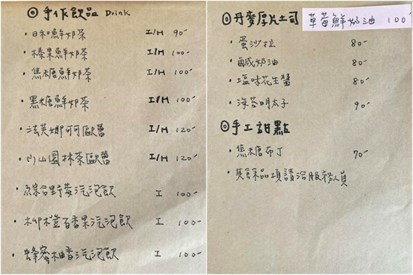 ◎手作飲品 Drink
・日和鮮奶茶 I/H 90-
・榛果鮮奶茶 I/H 100-
・焦糖鮮奶茶 I/H 100-
・黑糖鮮奶茶 I/H 100-
・法芙娜可可歐蕾 I/H 120-
・小山園抹茶歐蕾 I/H 120-
・ I 100-
・柳橙百香果汽泡飲 I 100-
・蜂蜜柚香汽泡飲 I 100-
◎丹麥厚片土司
草莓鮮奶油 100
・蛋沙拉 80-
・鹹奶油 80-
・鹽味花生醬 80-
・明太子 90-
◎手工甜點
・焦糖布丁 70-
・其余品項請洽服務人員